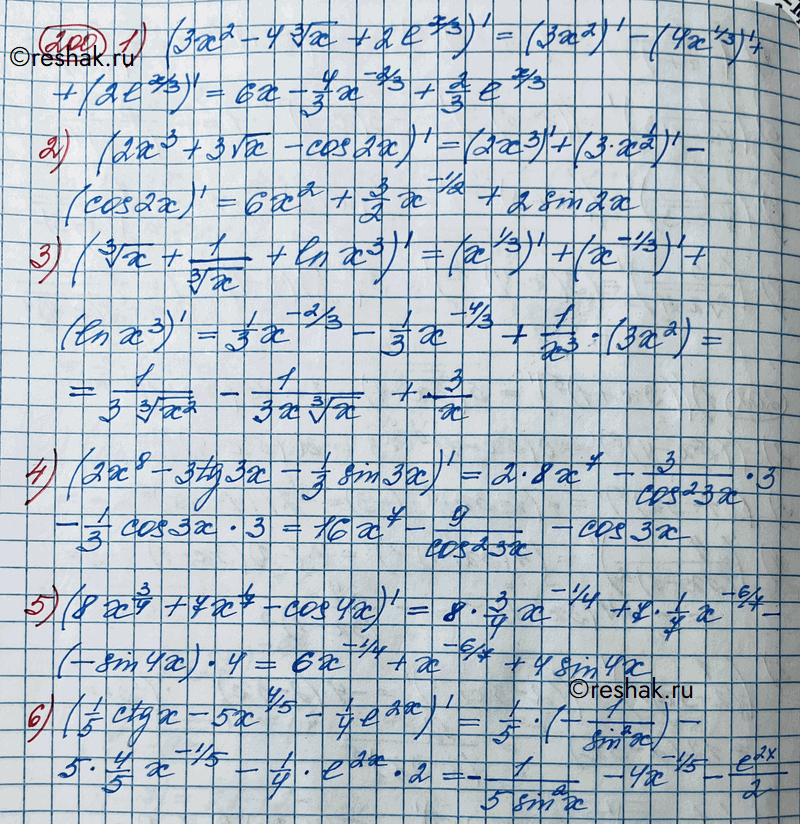 ©reshak.ru
200 1) (3x² - 4∛x + 2e^(x/3))' = (3x²)' - (4x^(1/3))' +
+ (2e^(x/3))' = 6x - 4/3 x^(-2/3) + 2/3 e^(x/3)
2) (2x³ + 3√x - cos2x)' = (2x³)' + (3·x^(1/2))' -
(cos2x)' = 6x² + 3/2 x^(-1/2) + 2 sin2x
3) (∛x + 1/∛x + ln x³)' = (x^(1/3))' + (x^(-1/3))' +
(ln x³)' = 1/3 x^(-2/3) - 1/3 x^(-4/3) + 1/x³ · (3x²) =
= 1/(3∛x²) - 1/(3x∛x) + 3/x
4) (2x⁸ - 3tg3x - 1/3 sin3x)' = 2·8x⁷ - 3/cos²3x · 3
- 1/3 cos3x · 3 = 16x⁷ - 9/cos²3x - cos3x
5) (8x^(3/4) + 7x^(1/7) - cos4x)' = 8·3/4 x^(-1/4) + 7·1/7 x^(-6/7) -
(-sin4x)·4 = 6x^(-1/4) + x^(-6/7) + 4sin4x
©reshak.ru
6) (1/5 ctgx - 5x^(4/5) - 1/4 e^(2x))' = 1/5 · (-1/sin²x) -
5·4/5 x^(-1/5) - 1/4 · e^(2x) · 2 = -1/(5 sin²x) - 4x^(-1/5) - e^(2x)/2